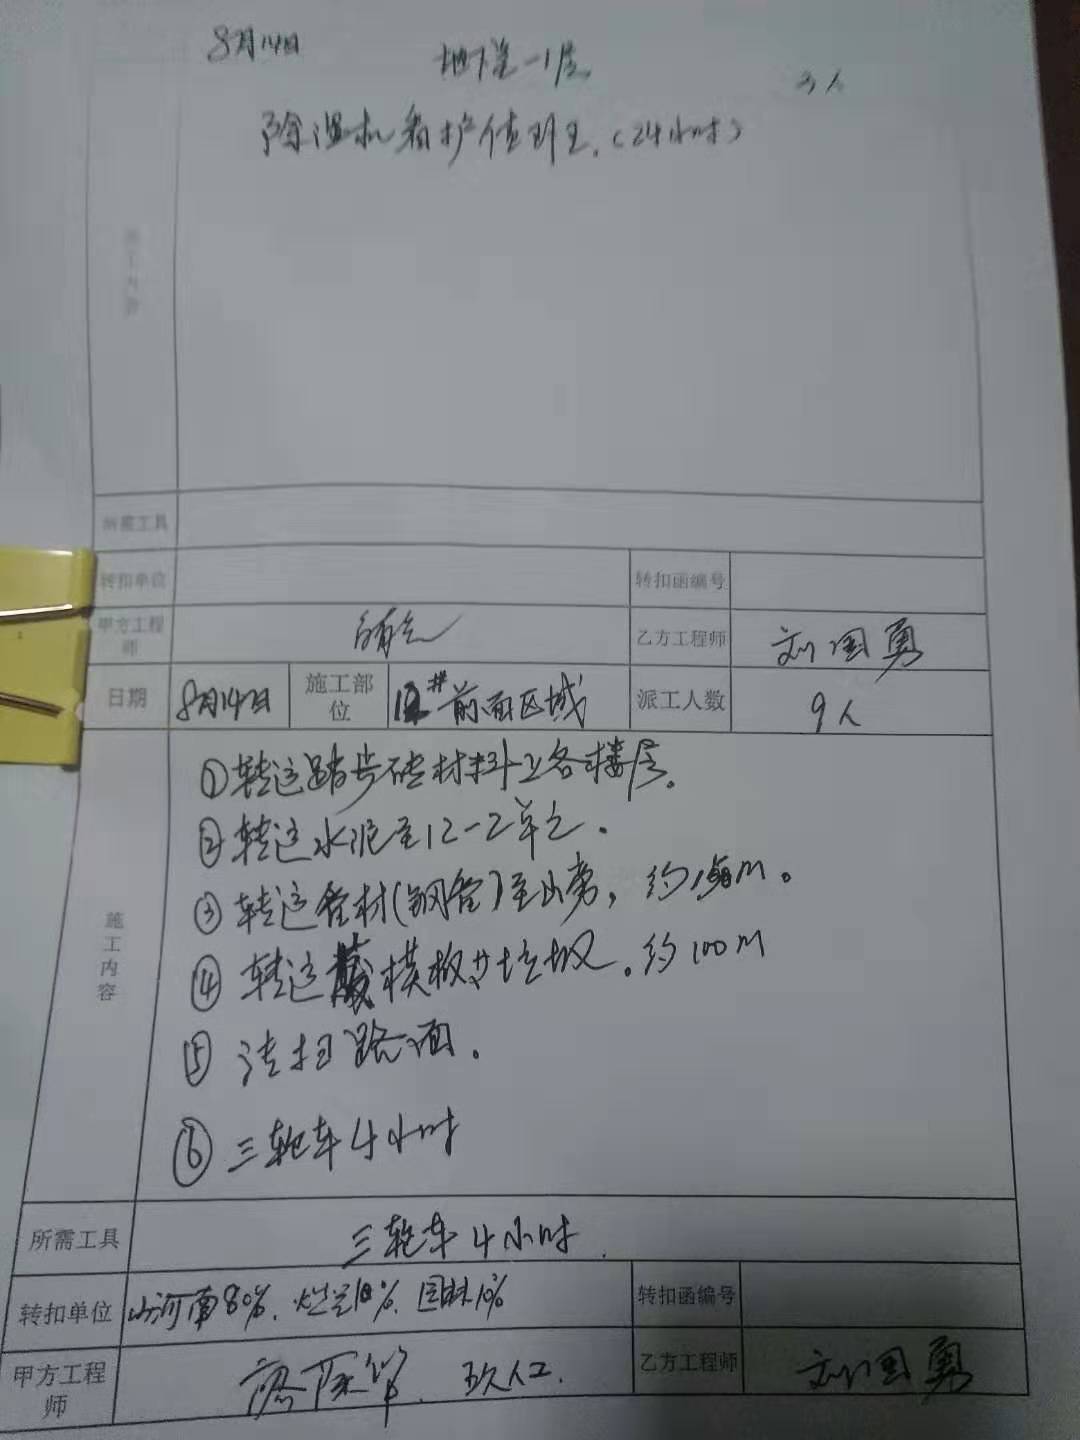 8月14日 地下室-1层 3人
除湿机看护值班工.(24小时)
施工内容
所需工具
转扣单位 转扣函编号
甲方工程师 乙方工程师 刘国勇
日期 8月14日 施工部位 12#前面区域 派工人数 9人
施工内容
①转运踏步砖材料上各楼层.
②转运水泥至12-2单元.
③转运管材(钢管)至山旁,约
④转运 模板 垃圾.约100M
⑤清扫路面.
⑥三轮车4小时
所需工具 三轮车4小时.
转扣单位 山河南80%. 10%. 园林10% 转扣函编号
甲方工程师 乙方工程师 刘国勇